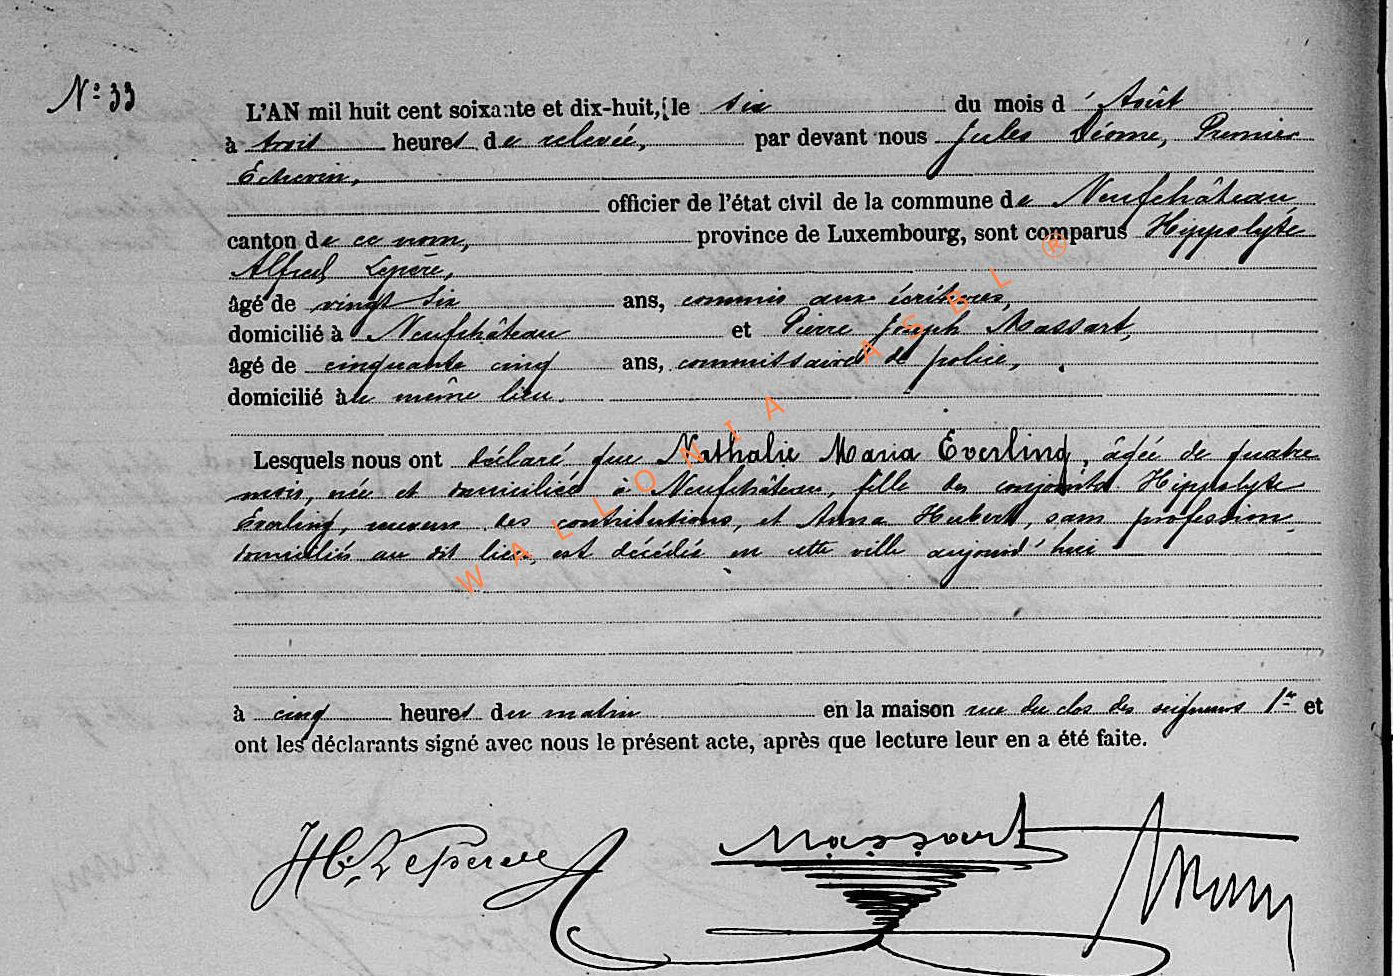 N° 33
L'AN mil huit cent soixante et dix-huit, le six du mois d'Août
à trois heures de relevée, par devant nous Jules Déome, Premier
Echevin,
officier de l'état civil de la commune de Neufchâteau,
canton de ce nom, province de Luxembourg, sont comparus Hippolyte
Alfred Lepère,
âgé de vingt six ans, commis aux écritures,
domicilié à Neufchâteau et Pierre Joseph Massart,
âgé de cinquante cinq ans, commissaire de police,
domicilié à le même lieu.
Lesquels nous ont déclaré que Nathalie Maria Everling, âgée de quatre
mois, née et domiciliée à Neufchâteau, fille des conjoints Hippolyte
Everling, receveur des contributions, et Anna Hubert, sans profession,
domiciliés au dit lieu, est décédée en cette ville aujourd'hui
à cinq heures du matin en la maison rue du clos des seigneurs 1er et
ont les déclarants signé avec nous le présent acte, après que lecture leur en a été faite.
Massart
WALLONIA ASBL ®